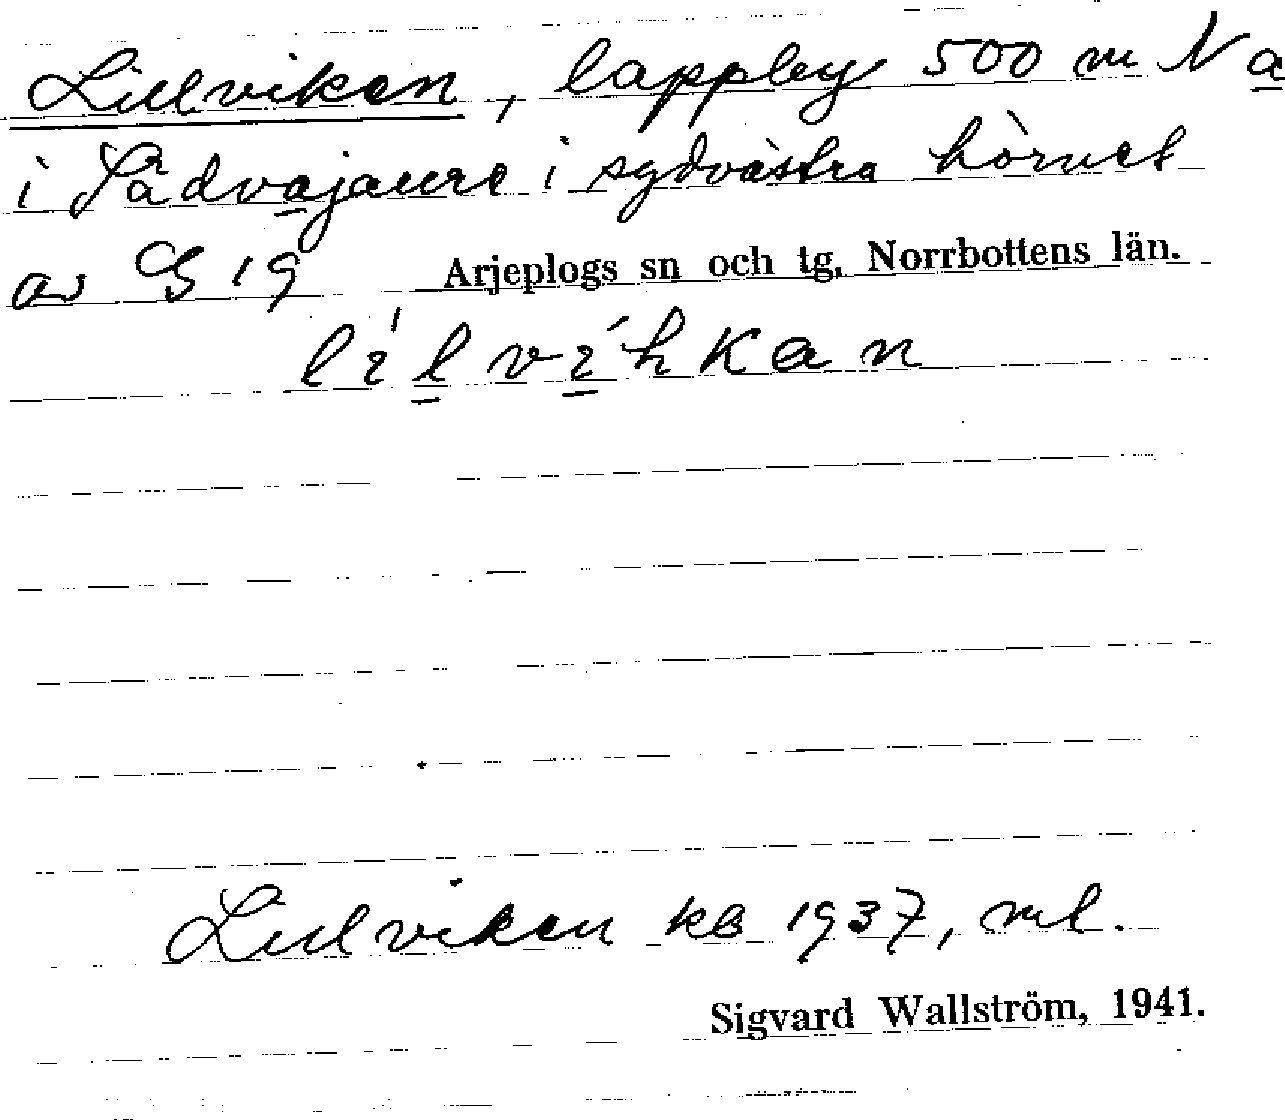 Lillviken, lappby 500 m N a
i Sädvajaure i sydvästra hörnet
av G 19 Arjeplogs sn och tg, Norrbottens län.
lílvíhkan
Lillviken kb 1937, ml.
Sigvard Wallström, 1941.